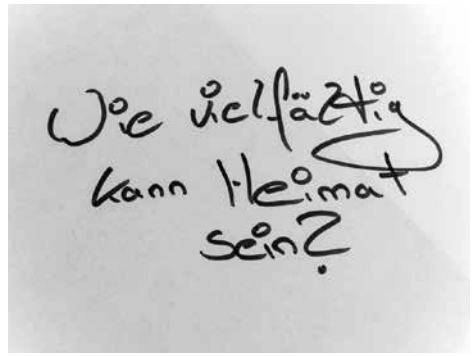 Wie vielfältig
kann Heimat
sein?